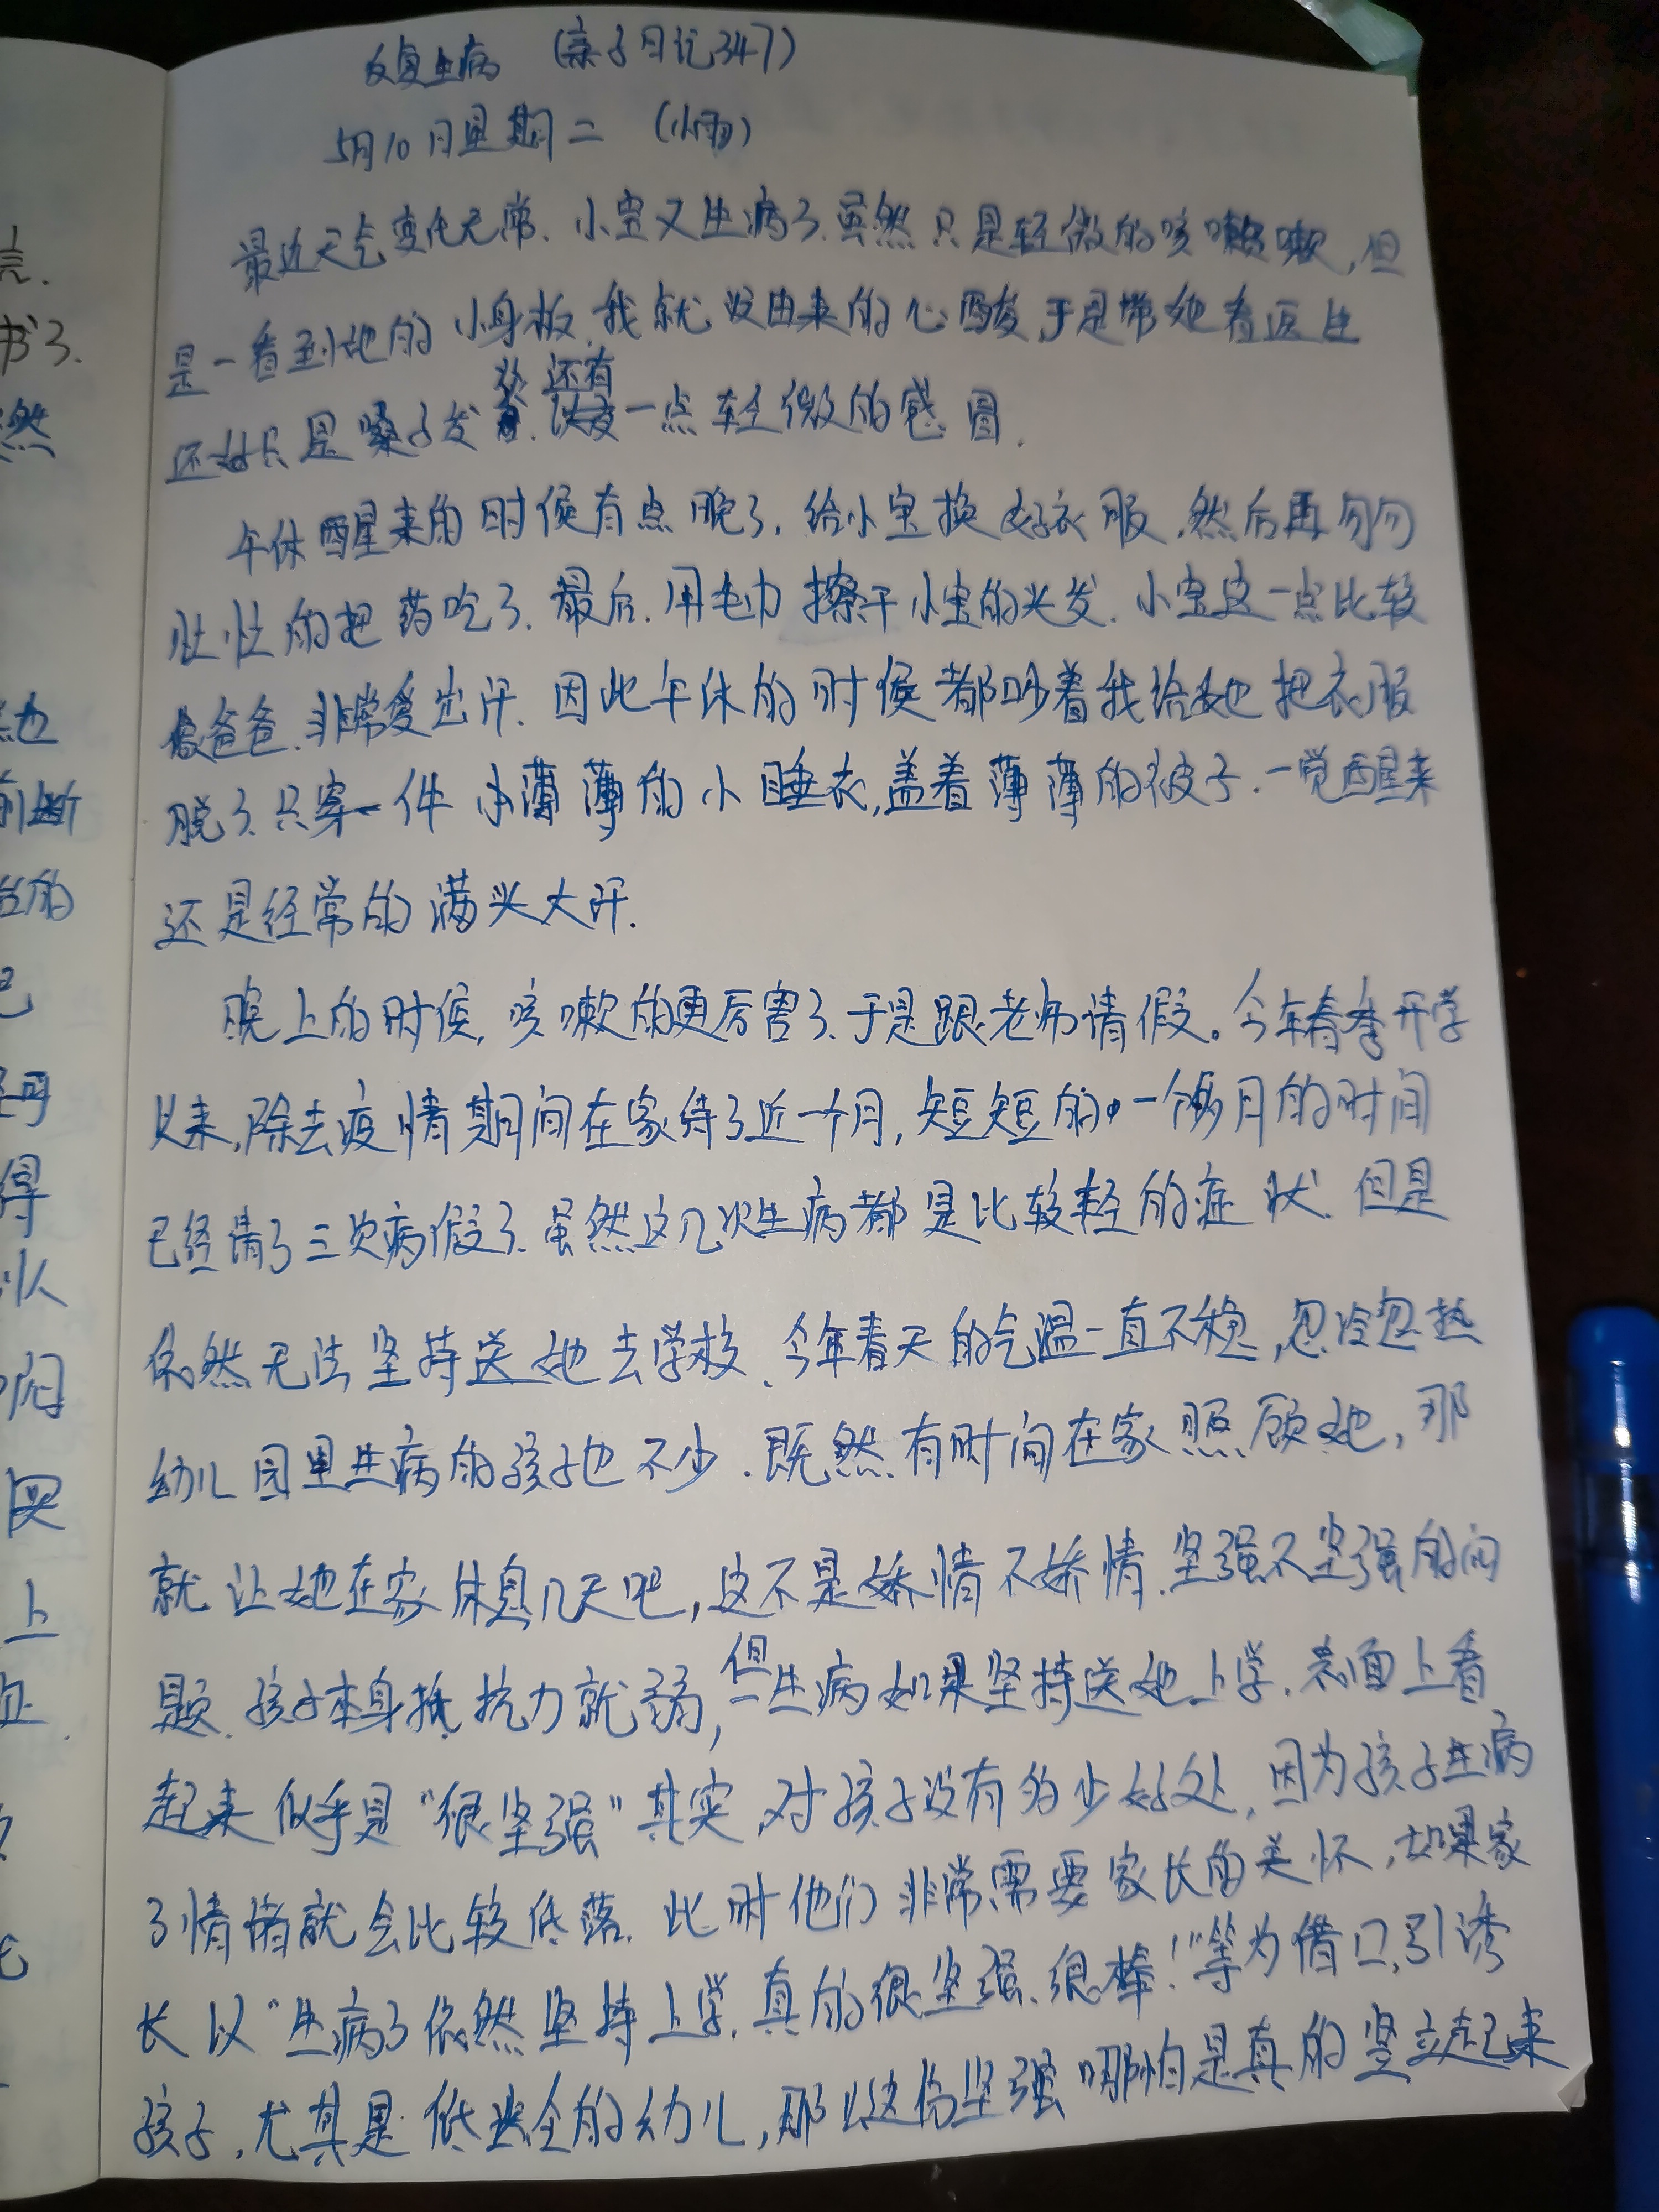 反复生病 (亲子日记347)
5月10日星期二 (小雨)
最近天气变化无常.小宝又生病了.虽然只是轻微的咳嗽,但
是一看到她的小身板,我就没由来的心酸,于是带她看医生
还好只是嗓子发炎.还有一点轻微的感冒.
午休醒来的时候有点晚了,给小宝换好衣服,然后再匆匆
忙忙的把药吃了.最后.用毛巾擦干小宝的头发.小宝这一点比较
像爸爸.非常爱出汗.因此午休的时候都吵着我给她把衣服
脱了.只穿一件小薄薄的小睡衣,盖着薄薄的被子.一觉醒来
还是经常的满头大汗.
晚上的时候,咳嗽的更厉害了.于是跟老师请假。今年春季开学
以来,除去疫情期间在家待了近一个月,短短的一个多月的时间
已经请了三次病假了.虽然这几次生病都是比较轻的症状.但是
依然无法坚持送她去学校.今年春天的气温一直不稳,忽冷忽热
幼儿园里生病的孩子也不少.既然有时间在家照顾她,那
就让她在家休息几天吧,这不是娇情不娇情.坚强不坚强的问
题.孩子本身抵抗力就弱,但一生病如果坚持送她上学.表面上看
起来似乎是"很坚强"其实,对孩子没有多少好处,因为孩子生病
了情绪就会比较低落.此时他们非常需要家长的关怀,如果家
长以"生病了依然坚持上学.真的很坚强.很棒!"等为借口,引诱
孩子,尤其是低龄的幼儿,那么这份坚强哪怕是真的竖立起来